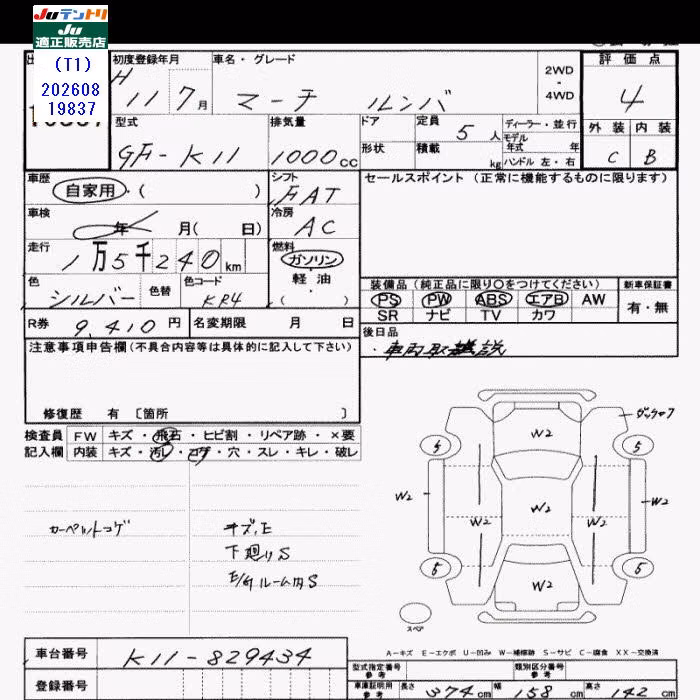 JUテントリ
JU
適正販売店
(T1)
202608
19837
初度登録年月 車名・グレード 2WD - 4WD 評価点
H 11 7月 マーチ ルンバ 4
型式 排気量 ドア 定員 5人 ディーラー・並行 外装 内装
モデル 年式 年
GF-K11 1000cc 形状 積載 kg ハンドル 左・右 C B
車歴 自家用・( ) シフト FAT セールスポイント (正常に機能するものに限ります)
車検 年 月( 日) 冷房 AC
走行 1万5千240km 燃料 ガソリン・軽油・( )
色 シルバー 色替 色コード KR4
装備品 (純正品に限り〇をつけてください) 新車保証書
PS PW ABS エアB AW 有・無
SR ナビ TV カワ
R券 9,410円 名変期限 月 日 後日品
・車両取扱説
注意事項申告欄 (不具合内容等は具体的に記入して下さい)
修復歴 有 〔箇所 〕
検査員 FW キズ・飛石・ヒビ割・リペア跡・×要
記入欄 内装 キズ・汚レ・コゲ・穴・スレ・キレ・破レ
W2
5 5
W2 W2 W2 W2 W2
カーペットコゲ キズ、E
下廻りS
E/gルーム内S
5 W2 5
スペア
A-キズ E-エクボ U-凹み W-補修跡 S-サビ C-腐食 XX-交換済
車台番号 K11-829434
登録番号
型式指定番号 参考 類別区分番号 参考
車庫証明用 参考 長さ 374cm 幅 158cm 高さ 142cm